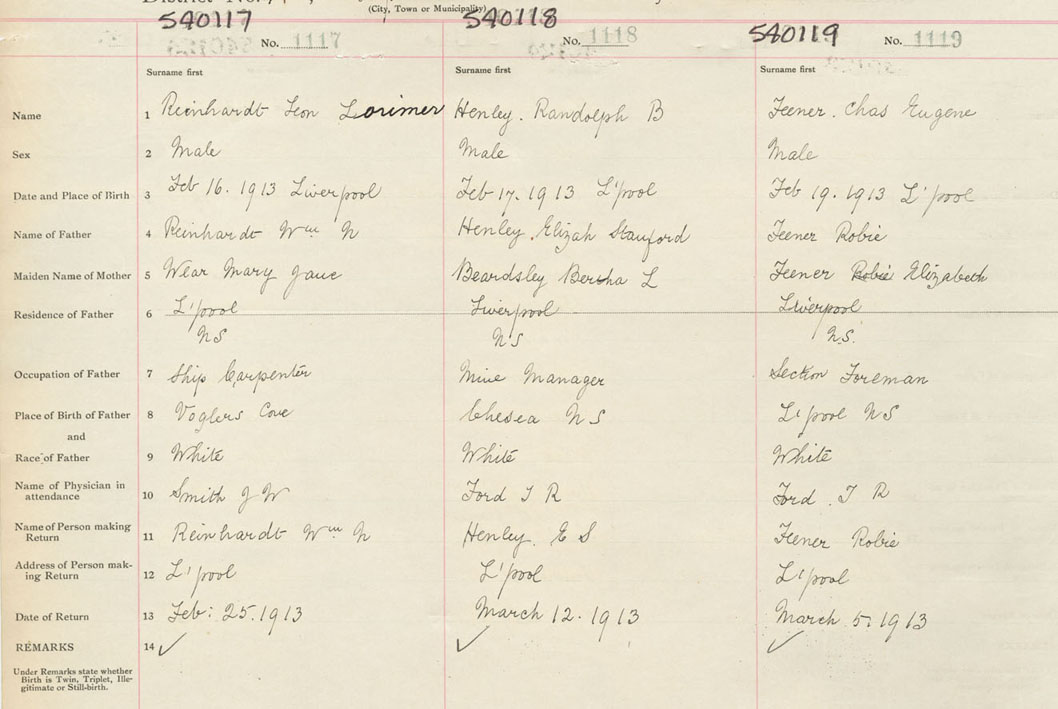 (City, Town or Municipality)
540117 540118 540119
No. 1117 No. 1118 No. 1119
Surname first Surname first Surname first
Name 1 Reinhardt Leon Lorimer Henley. Randolph B Feener. Chas Eugene
Sex 2 Male Male Male
Date and Place of Birth 3 Feb 16. 1913 Liverpool Feb 17. 1913 L'pool Feb 19. 1913 L'pool
Name of Father 4 Reinhardt Wm N Henley. Elizah Stanford Feener Robie
Maiden Name of Mother 5 Wear Mary Jane Beardsley Bertha L Feener Robie Elizabeth
Residence of Father 6 L'pool Liverpool Liverpool
NS NS N.S.
Occupation of Father 7 Ship Carpenter Mine Manager Section Foreman
Place of Birth of Father 8 Voglers Cove Chesea NS L'pool NS
and
Race of Father 9 White White White
Name of Physician in
attendance 10 Smith J W Ford T R Ford. T R
Name of Person making
Return 11 Reinhardt Wm N Henley. E S Feener Robie
Address of Person mak-
ing Return 12 L'pool L'pool L'pool
Date of Return 13 Feb: 25. 1913 March 12. 1913 March 5. 1913
REMARKS 14 ✓ ✓ ✓
Under Remarks state whether
Birth is Twin, Triplet, Ille-
gitimate or Still-birth.